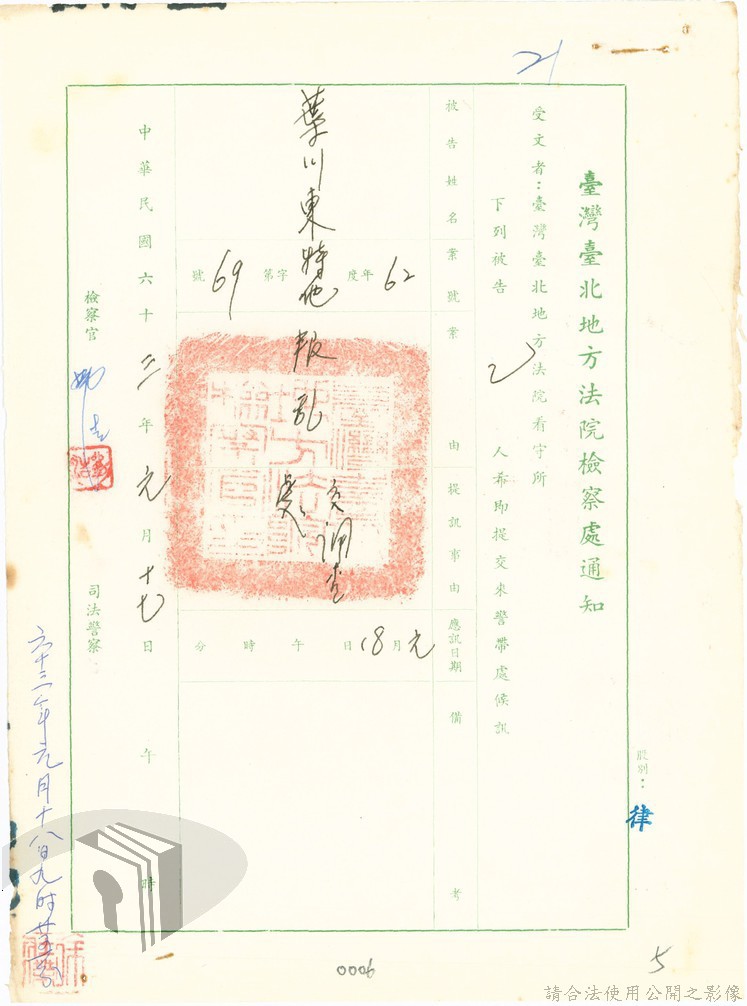 臺灣臺北地方法院檢察處通知
股別：律
受文者：臺灣臺北地方法院看守所
下列被告 乙 人希即提交來警帶處候訊
被告姓名
案號
案由
提訊事由
應訊日期
備考
葉川東特他
62年度 字第 69 號
叛乱
元月18日 午 時 分
中華民國六十二年元月十七日 午 時
檢察官
司法警察
六十二年元月十八日九時
21
0006
5
請合法使用公開之影像